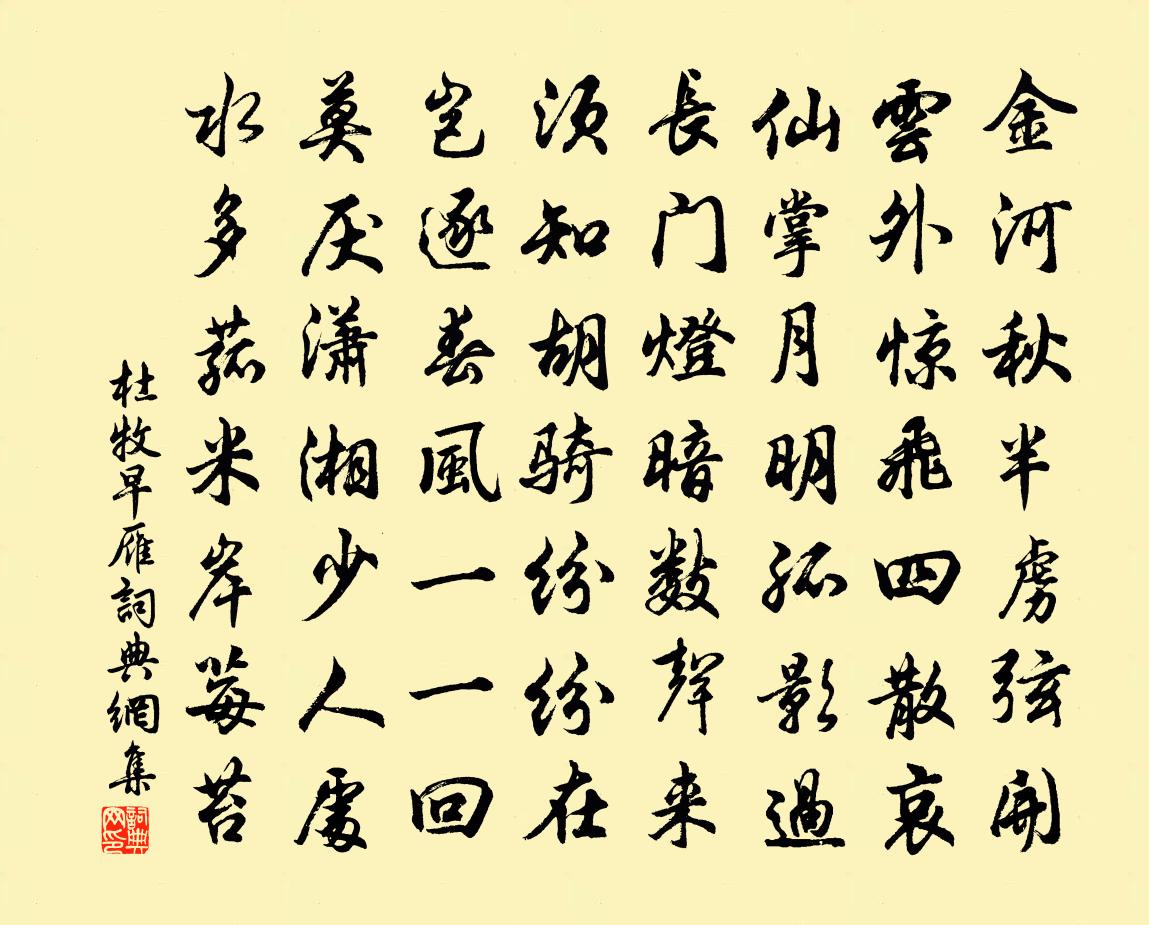 金河秋半虜弦開
雲外惊飛四散哀
仙掌月明孤影過
長门燈暗數聲来
須知胡騎紛紛在
岂逐春風一一回
莫厌瀟湘少人處
水多菰米岸莓苔
杜牧早雁詞典網集
詞典网印